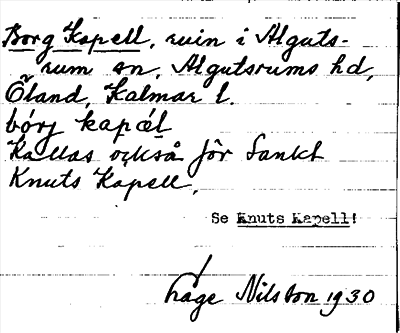 Borg Kapell, ruin i Alguts-
rum sn, Algutsrums hd,
Öland, Kalmar l.
bórj kapǽl
Kallas också för Sankt
Knuts Kapell.
Se Knuts Kapell!
Åge Nilston 1930